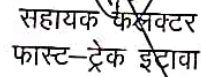 सहायक कलेक्टर
फास्ट-ट्रेक इटावा